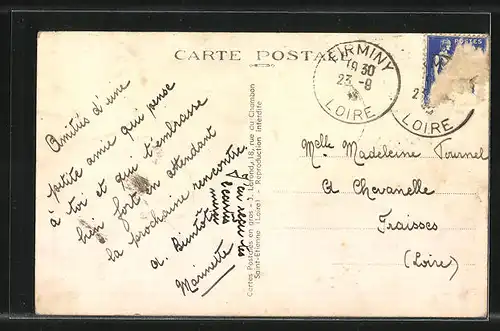 CARTE POSTALE
Amitiés d'une
petite amie qui pense
à toi et qui t'embrasse
bien fort en attendant
la prochaine rencontre
A. Bientôt
Marinette
Cartes Postales en gros - 18, rue du Chambon
Saint-Etienne (Loire) - Reproduction interdite
FIRMINY
19 30
23 -8
LOIRE
POSTES
LOIRE
Melle Madeleine Tournel
A Chavanelle
Fraisses
(Loire)